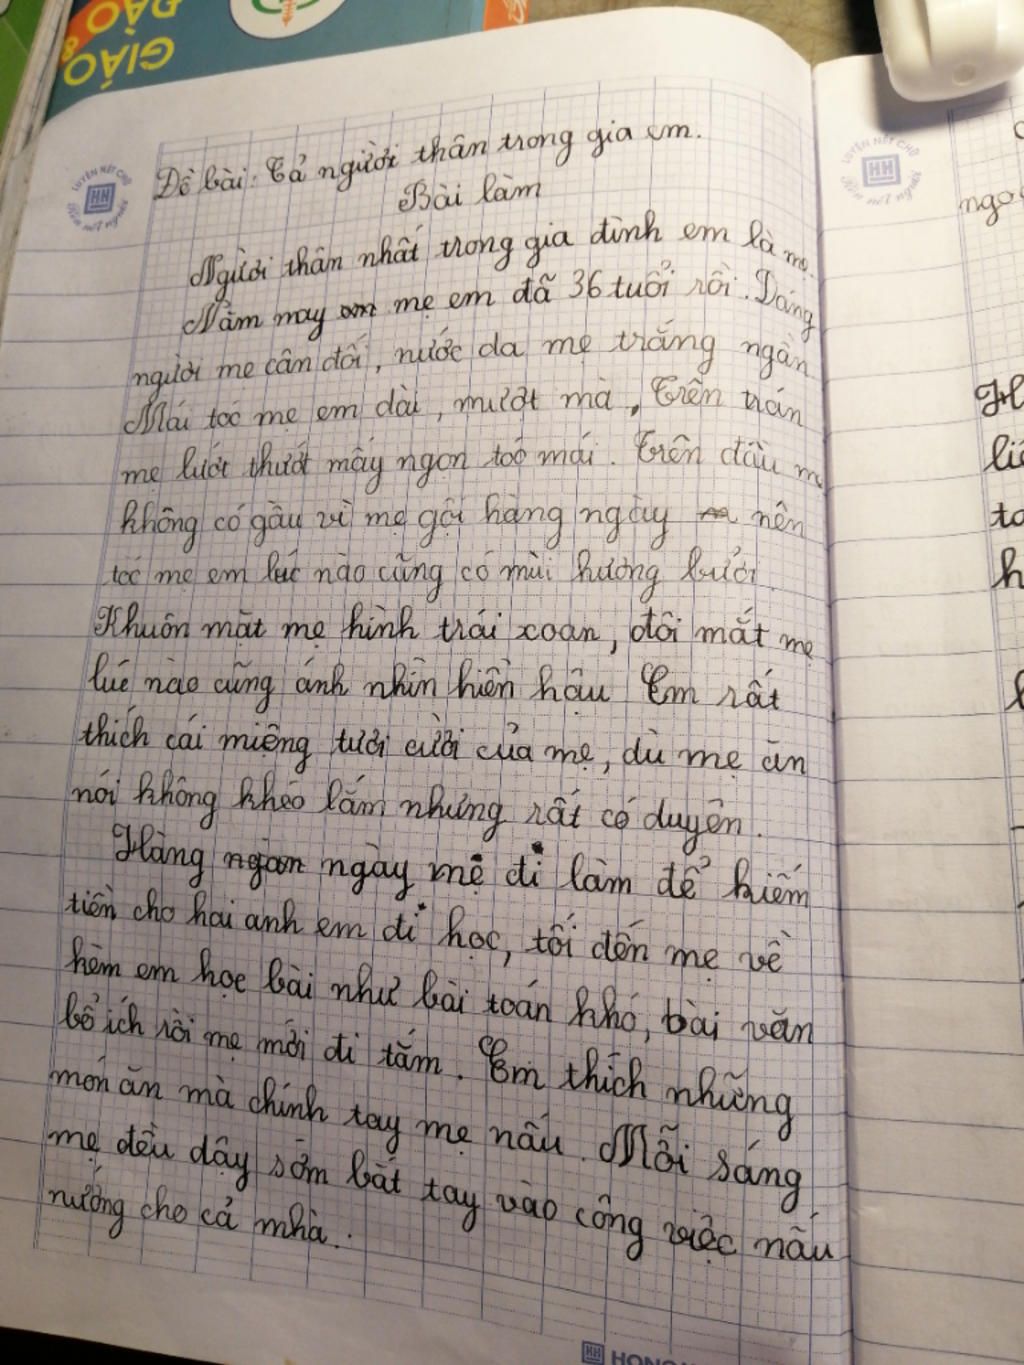 GIÁO
ĐẠO &
LUYỆN NÉT CHỮ
HH
Rèn nết người
LUYỆN NÉT CHỮ
HH
Rèn nết người
Đề bài: Tả người thân trong gia em.
Bài làm
Người thân nhất trong gia đình em là mẹ.
Năm nay mẹ em đã 36 tuổi rồi. Dáng
người mẹ cân đối, nước da mẹ trắng ngần
Mái tóc mẹ em dài, mượt mà, Trên trán
mẹ lướt thướt mấy ngọn tóc mái. Trên đầu mẹ
không có gầu vì mẹ gội hàng ngày nên
tóc mẹ em lúc nào cũng có mùi hương bưởi
Khuôn mặt mẹ hình trái xoan, đôi mắt mẹ
lúc nào cũng ánh nhìn hiền hậu Em rất
thích cái miệng tười cười của mẹ, dù mẹ ăn
nói không khéo lắm nhưng rất có duyên.
Hàng ngày mẹ đi làm để kiếm
tiền cho hai anh em đi học, tối đến mẹ về
kèm em học bài như bài toán khó, bài văn
bổ ích rồi mẹ mới đi tắm. Em thích những
món ăn mà chính tay mẹ nấu. Mỗi sáng
mẹ đều dậy sớm bắt tay vào công việc nấu
nướng cho cả nhà.
HH HONG
ngo
H
liê
to
h